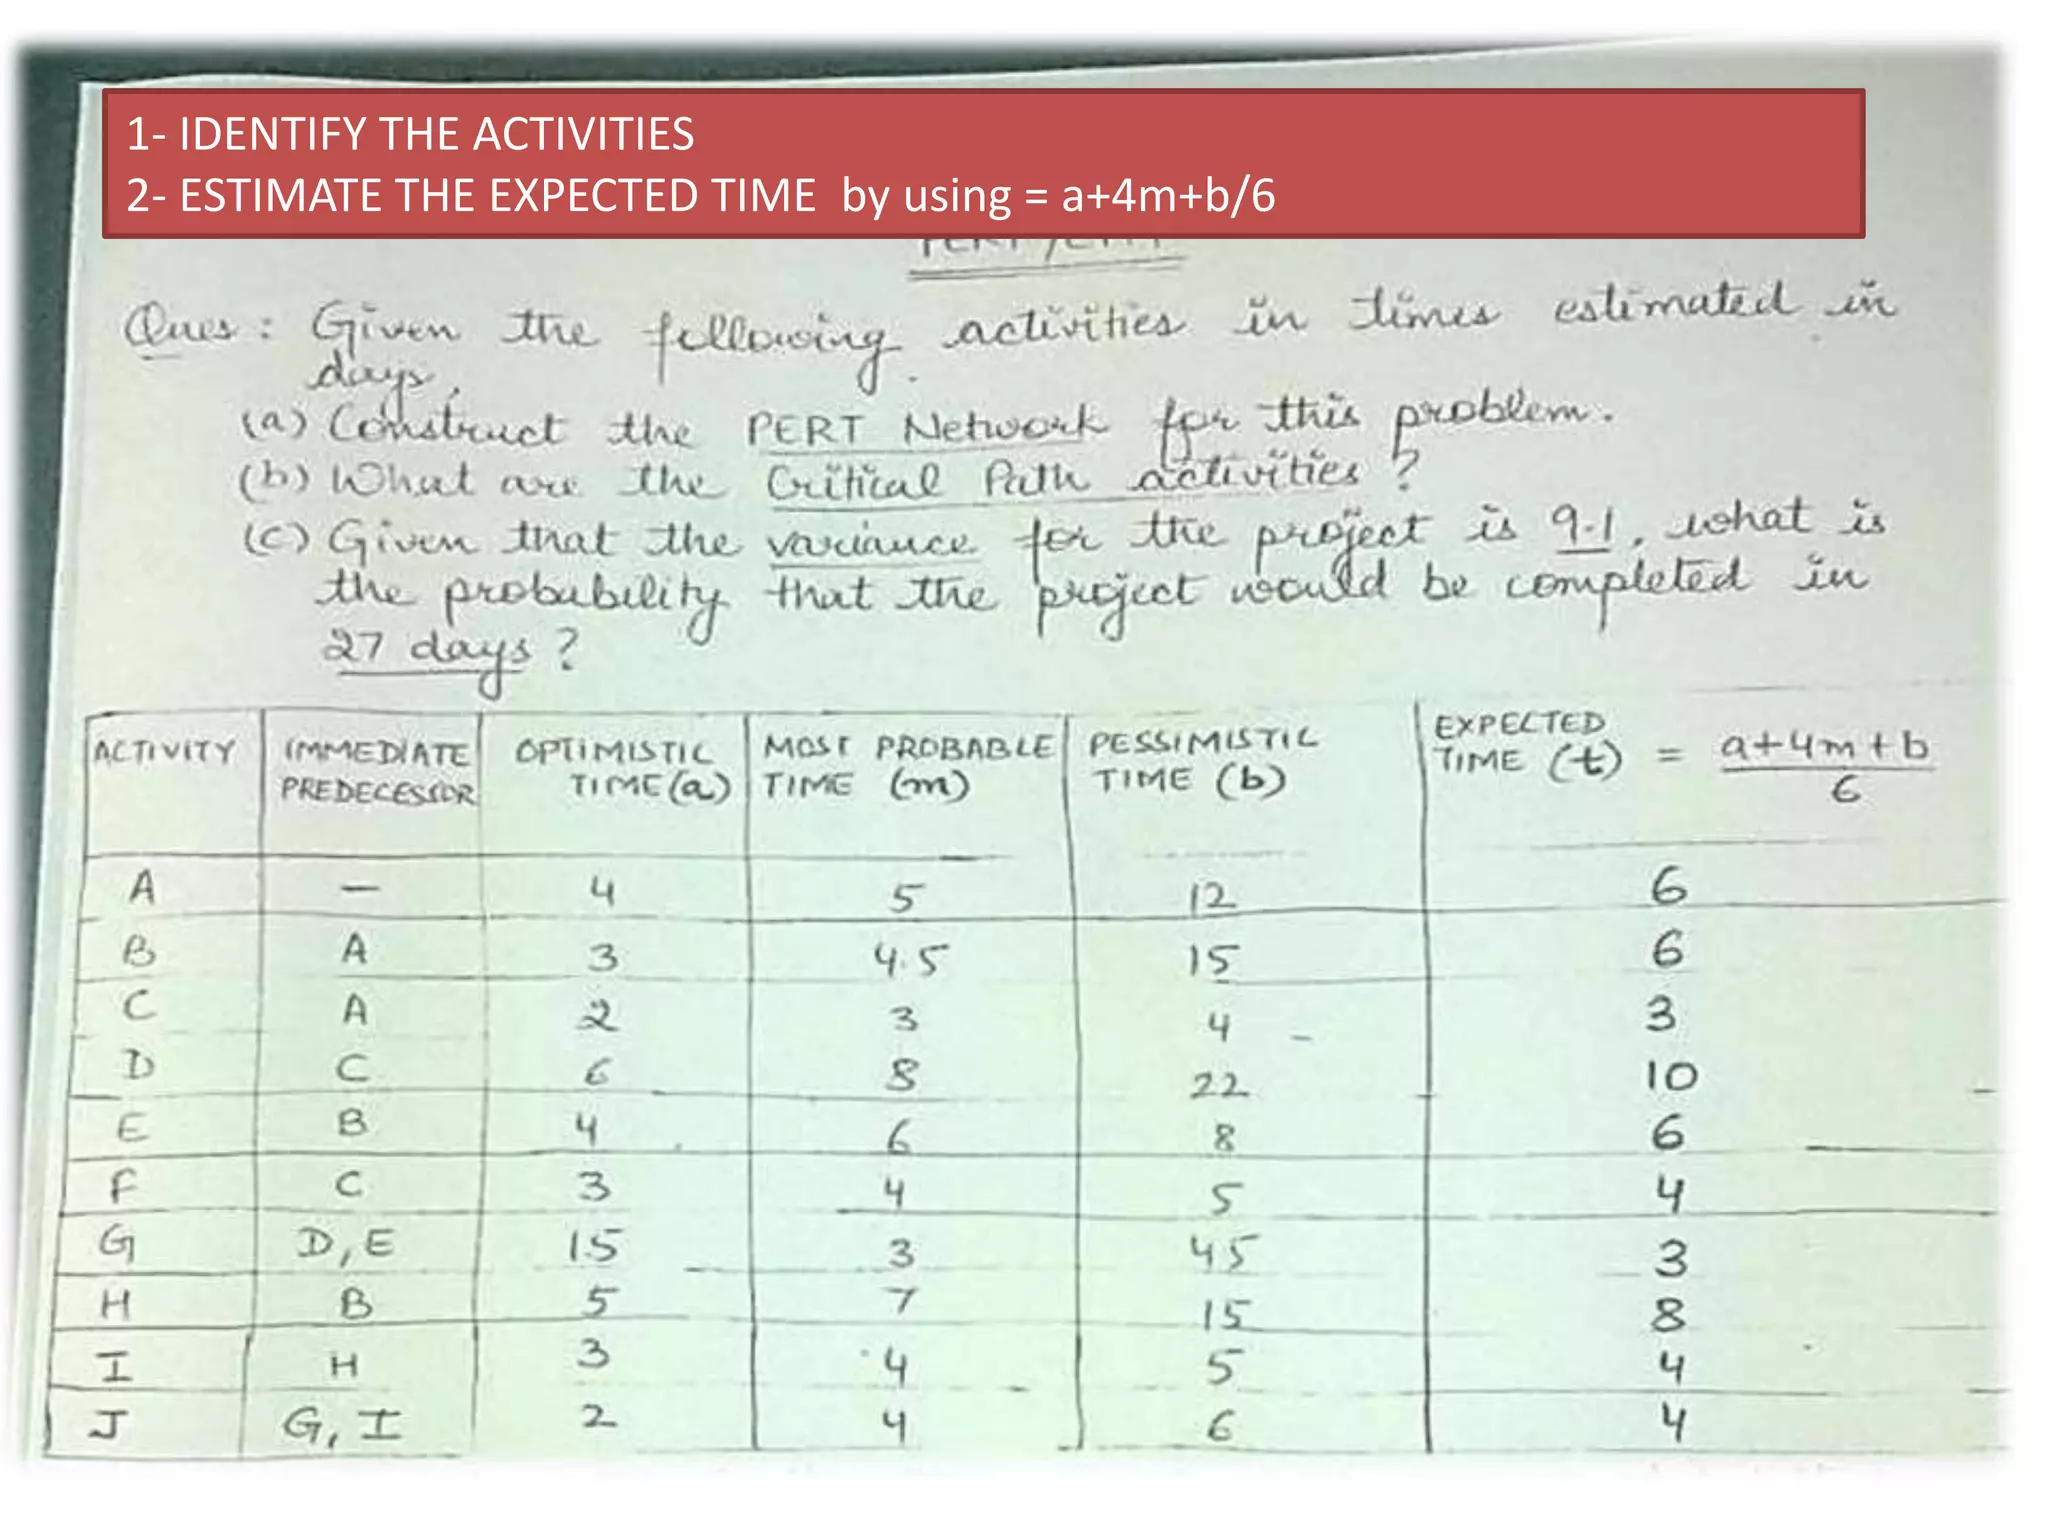 1- IDENTIFY THE ACTIVITIES
2- ESTIMATE THE EXPECTED TIME by using = a+4m+b/6
Ques : Given the following activities in times estimated in
days.
(a) Construct the PERT Network for this problem.
(b) What are the Critical Path activities ?
(c) Given that the variance for the project is 9.1, what is
the probability that the project would be completed in
27 days ?
ACTIVITY IMMEDIATE PREDECESSOR OPTIMISTIC TIME (a) MOST PROBABLE TIME (m) PESSIMISTIC TIME (b) EXPECTED TIME (t) = a+4m+b / 6
A – 4 5 12 6
B A 3 4.5 15 6
C A 2 3 4 3
D C 6 8 22 10
E B 4 6 8 6
F C 3 4 5 4
G D, E 1.5 3 45 3
H B 5 7 15 8
I H 3 4 5 4
J G, I 2 4 6 4